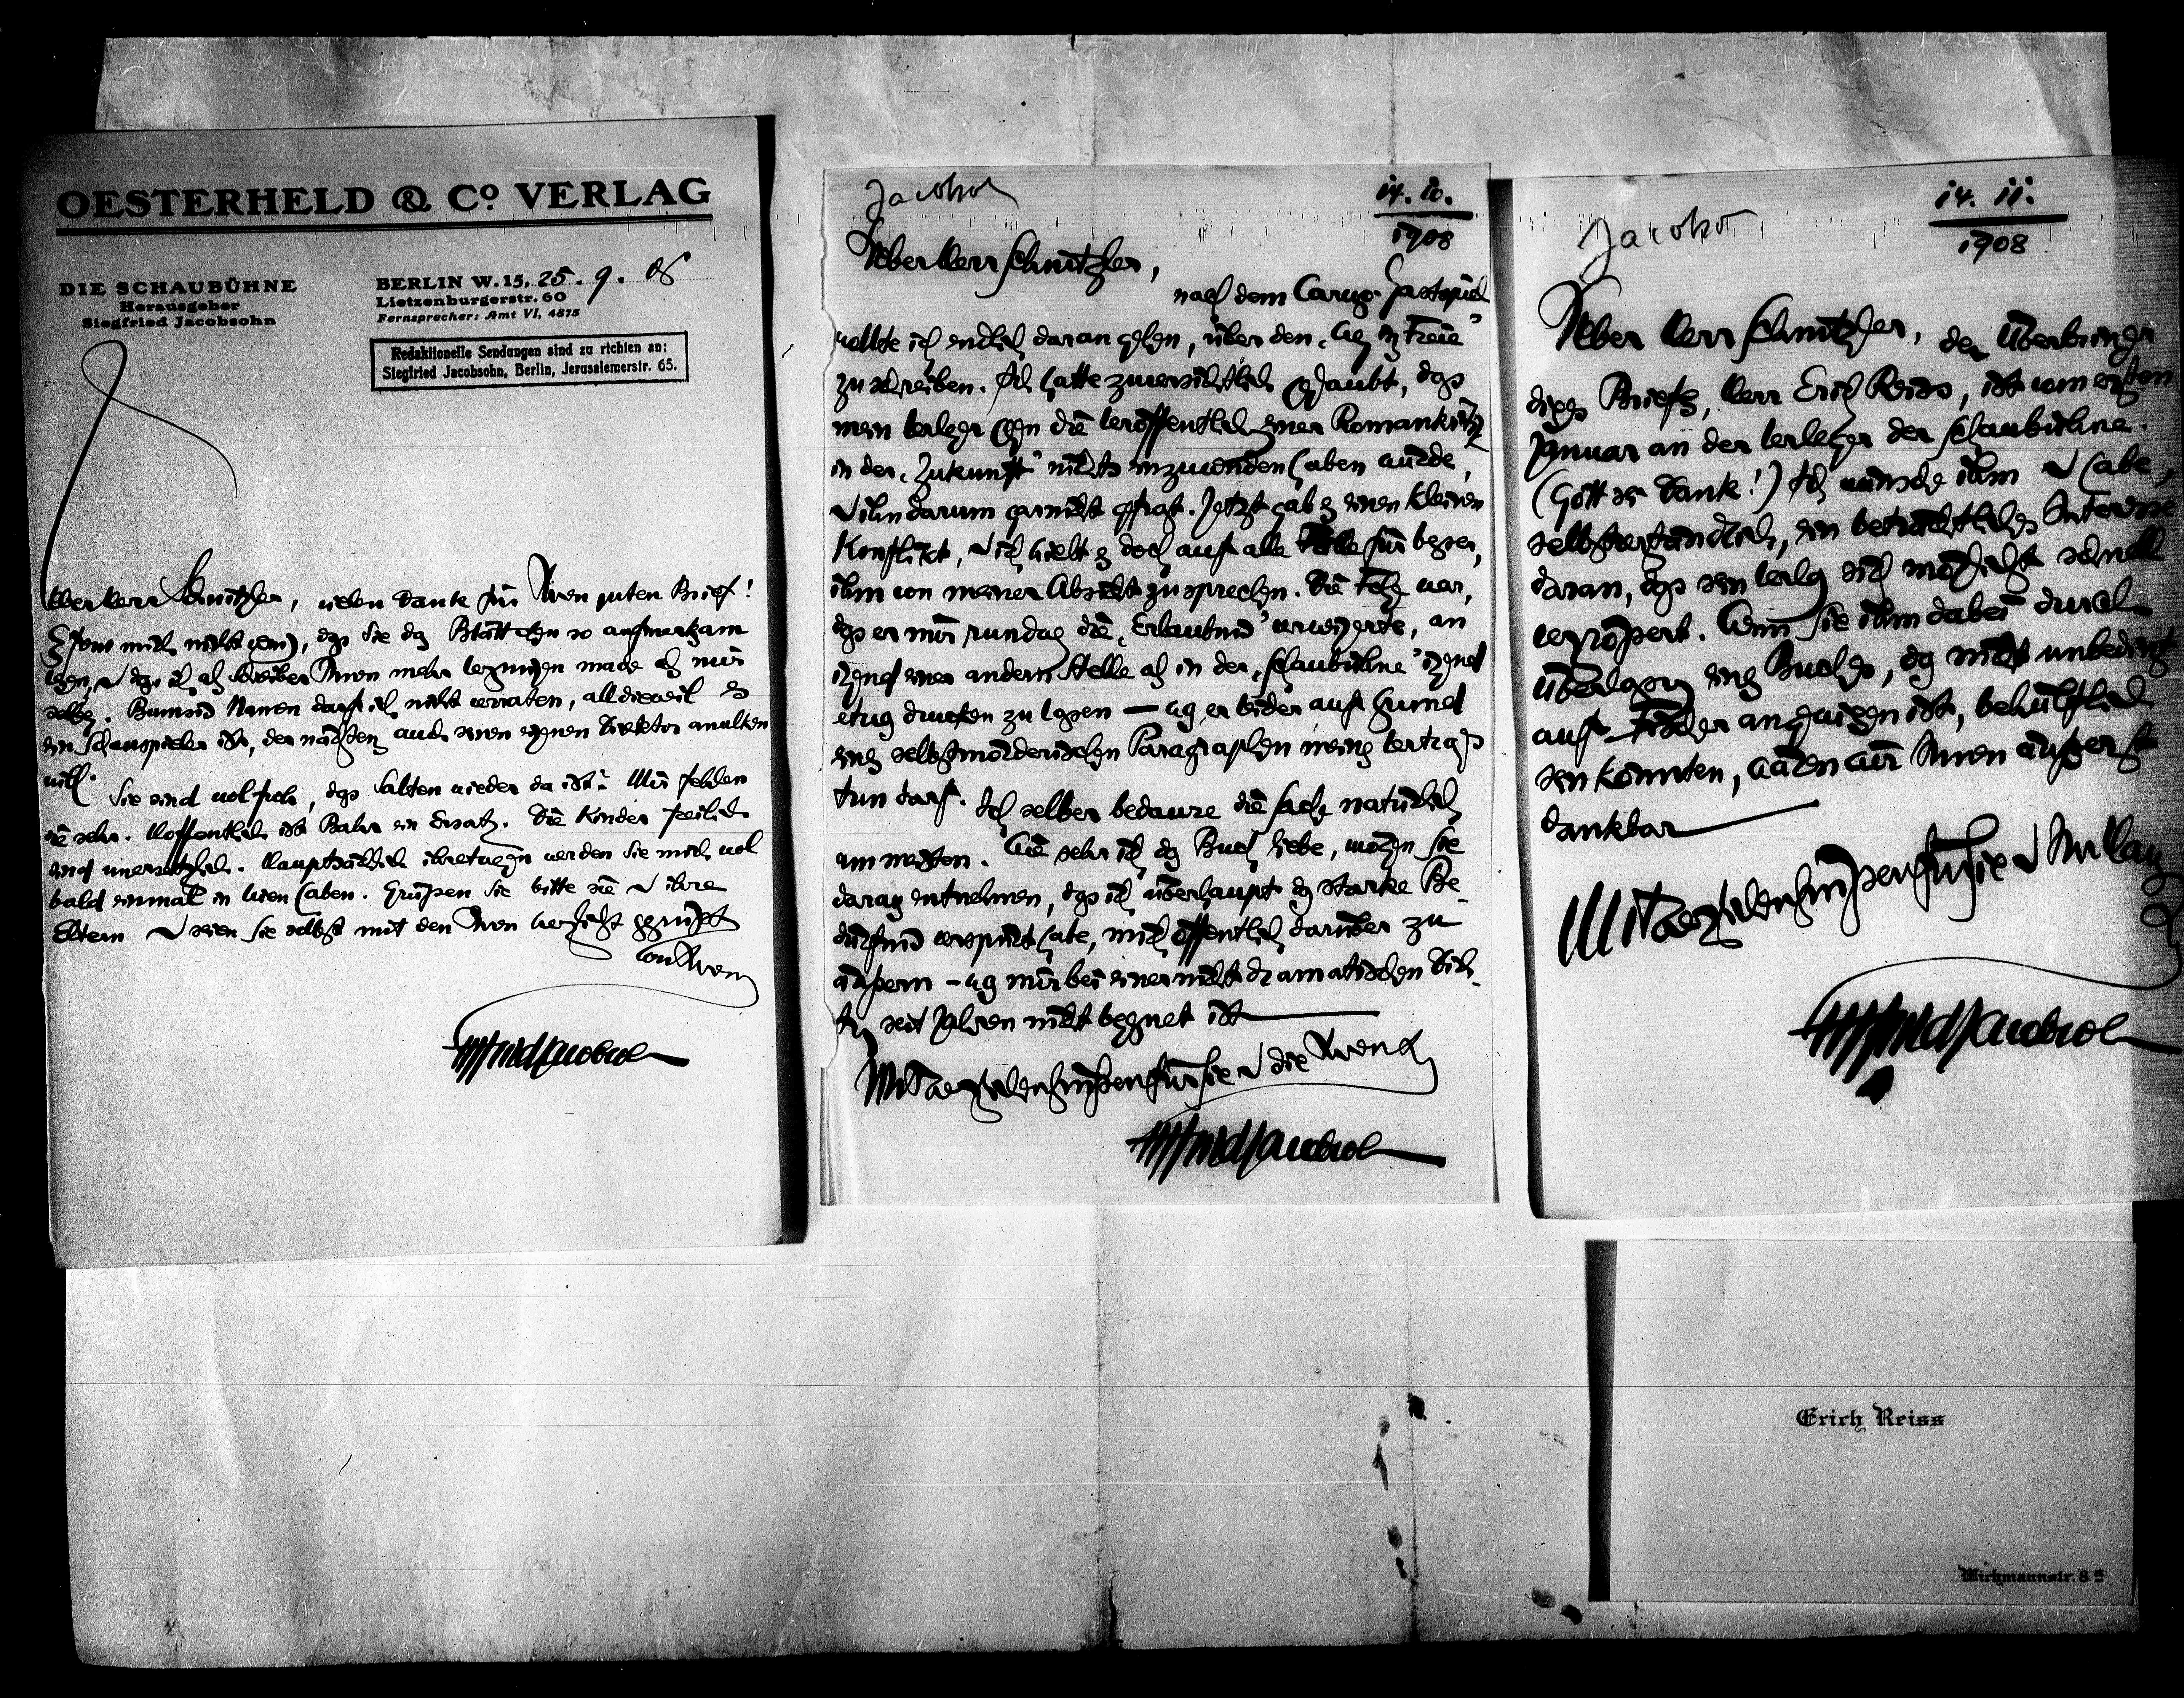 OESTERHELD & Co. VERLAG
DIE SCHAUBÜHNE
Herausgeber
Siegfried Jacobsohn
BERLIN W. 15, 25. 9. 08
Lietzenburgerstr. 60
Fernsprecher: Amt VI, 4875
Redaktionelle Sendungen sind zu richten an:
Siegfried Jacobsohn, Berlin, Jerusalemerstr. 65.
Lieber Herr Schnitzler, vielen Dank für Ihren guten Brief!
Es freut mich, daß Sie das Blättchen so aufmerksam
lesen, u daß ich als Schreiber Ihnen mehr Vergnügen mache als mir
selber. Namen darf ich nicht verraten, alldieweil es
ein Schauspieler ist, der nächstens auch seinen eignen Direktor anulken
will.
Sie sind wol froh, daß Salten wieder da ist? Mir fehlen
sie sehr. Hoffentlich ist Bahr ein Ersatz. Die Kinder freilich
sind unersetzlich. Hauptsächlich ihretwegen werden Sie mich wol
bald einmal in Wien haben. Grüßen Sie bitte sie u ihre
Eltern u seien Sie selbst mit den Ihren herzlichst gegrüßt
von Ihrem
Siegfried Jacobsohn
Jacobso
14. 10.
1908
Lieber Herr Schnitzler,
nach dem Caruso-Gastspiel
wollte ich endlich daran gehen, über den „Weg ins Freie“
zu schreiben. Ich hatte zuversichtlich geglaubt, daß
mein Verleger gegen die Veröffentlichung einer Romankritik
in der „Zukunft“ nichts einzuwenden haben würde,
u ihn darum garnicht gefragt. Jetzt gab es einen kleinen
Konflikt, u ich hielt es doch auf alle Fälle für besser,
ihm von meiner Absicht zu sprechen. Die Folge war,
daß er mir rundweg die „Erlaubnis“ verweigerte, an
irgend einer andern Stelle als in der „Schaubühne“ irgend
etwas drucken zu lassen — was er leider auf Grund
eines selbstmörderischen Paragraphen meines Vertrags
tun darf. Ich selber bedaure die Sache natürlich
am meisten. Wie sehr ich das Buch liebe, mögen Sie
daraus entnehmen, daß ich überhaupt das starke Be-
dürfnis verspürt habe, mich öffentlich darüber zu
äußern – was mir bei einer nicht dramatischen Dich-
tung seit Jahren nicht begegnet ist
Mit herzlichen Grüßen für Sie u die Ihren
Siegfried Jacobsohn
Jacobso
14. 11.
1908
Lieber Herr Schnitzler, der Überbringer
dieses Briefes, Herr Erich Reiss, ist vom ersten
Januar an der Verleger der Schaubühne.
(Gott sei Dank!) Ich wünsche ihm u habe,
selbstverständlich, ein beträchtliches Interesse
daran, daß sein Verlag sich möglichst schnell
vergrößert. Wenn Sie ihm dabei durch
Überlassung eines Buches, das nicht unbedingt
auf Fischer angewiesen ist, behülflich
sein könnten, wären wir Ihnen äußerst
dankbar
Mit herzlichen Grüßen für Sie u
Siegfried Jacobsohn
Erich Reiss
Wichmannstr. 8